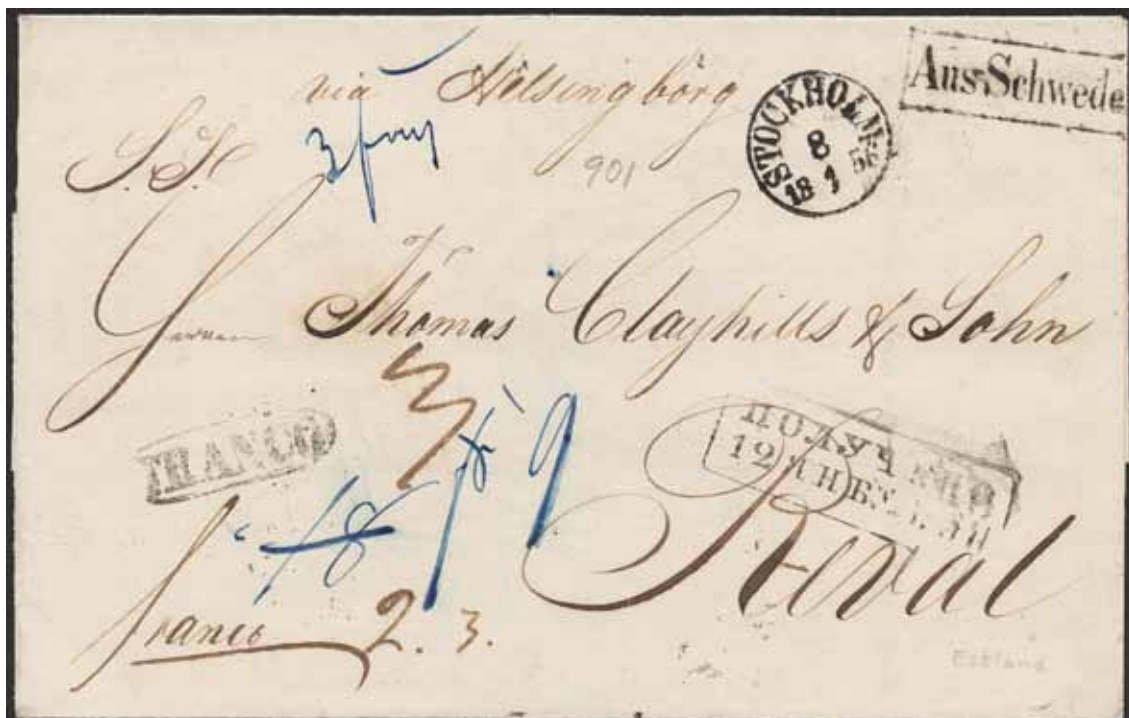 via Helsingborg
Aus Schwede
STOCKHOLM
8
18 1 55
S. T.
901
Herren Thomas Clayhills & Sohn
3
FRANCO
9
ПОЛУЧЕНО
12 ЯНВ.
Reval
18
franco 2. 3.
Estland